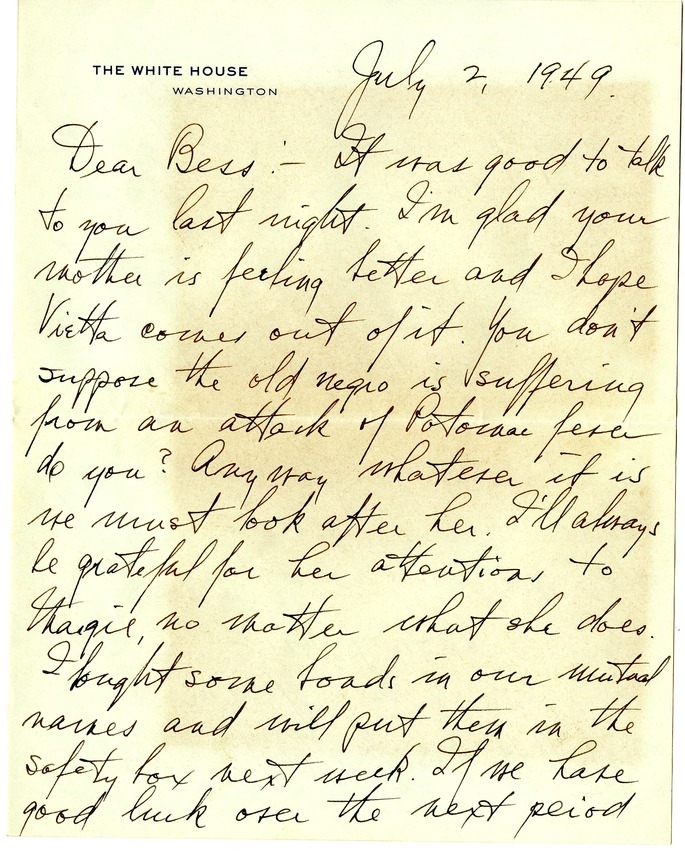 THE WHITE HOUSE
WASHINGTON
July 2, 1949.
Dear Bess:- It was good to talk
to you last night. I'm glad your
mother is feeling better and I hope
Vietta comes out of it. You don't
suppose the old negro is suffering
from an attack of Potomac fever
do you? Anyway whatever it is
we must look after her. I'll always
be grateful for her attentions to
Margie, no matter what she does.
I bought some bonds in our mutual
names and will put them in the
safety box next week. If we have
good luck over the next peiod